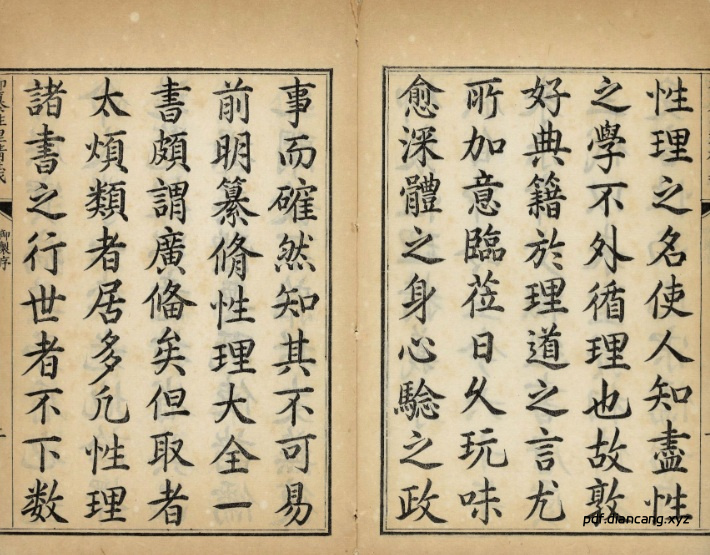 性理之名使人知盡性
之學不外循理也故敦
好典籍於理道之言尤
所加意臨莅日久玩味
愈深體之身心驗之政
事而確然知其不可易
前明纂脩性理大全一
書頗謂廣俻矣但取者
太煩類者居多凡性理
諸書之行世者不下数
御製序
pdf.diancang.xyz